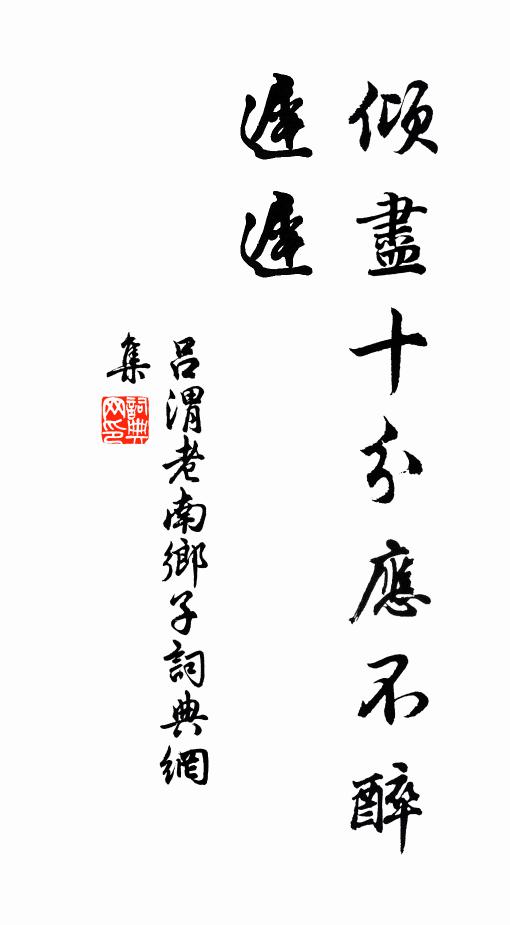 傾盡十分應不醉
遲遲
吕渭老南鄉子詞典網
集
詞典
网印